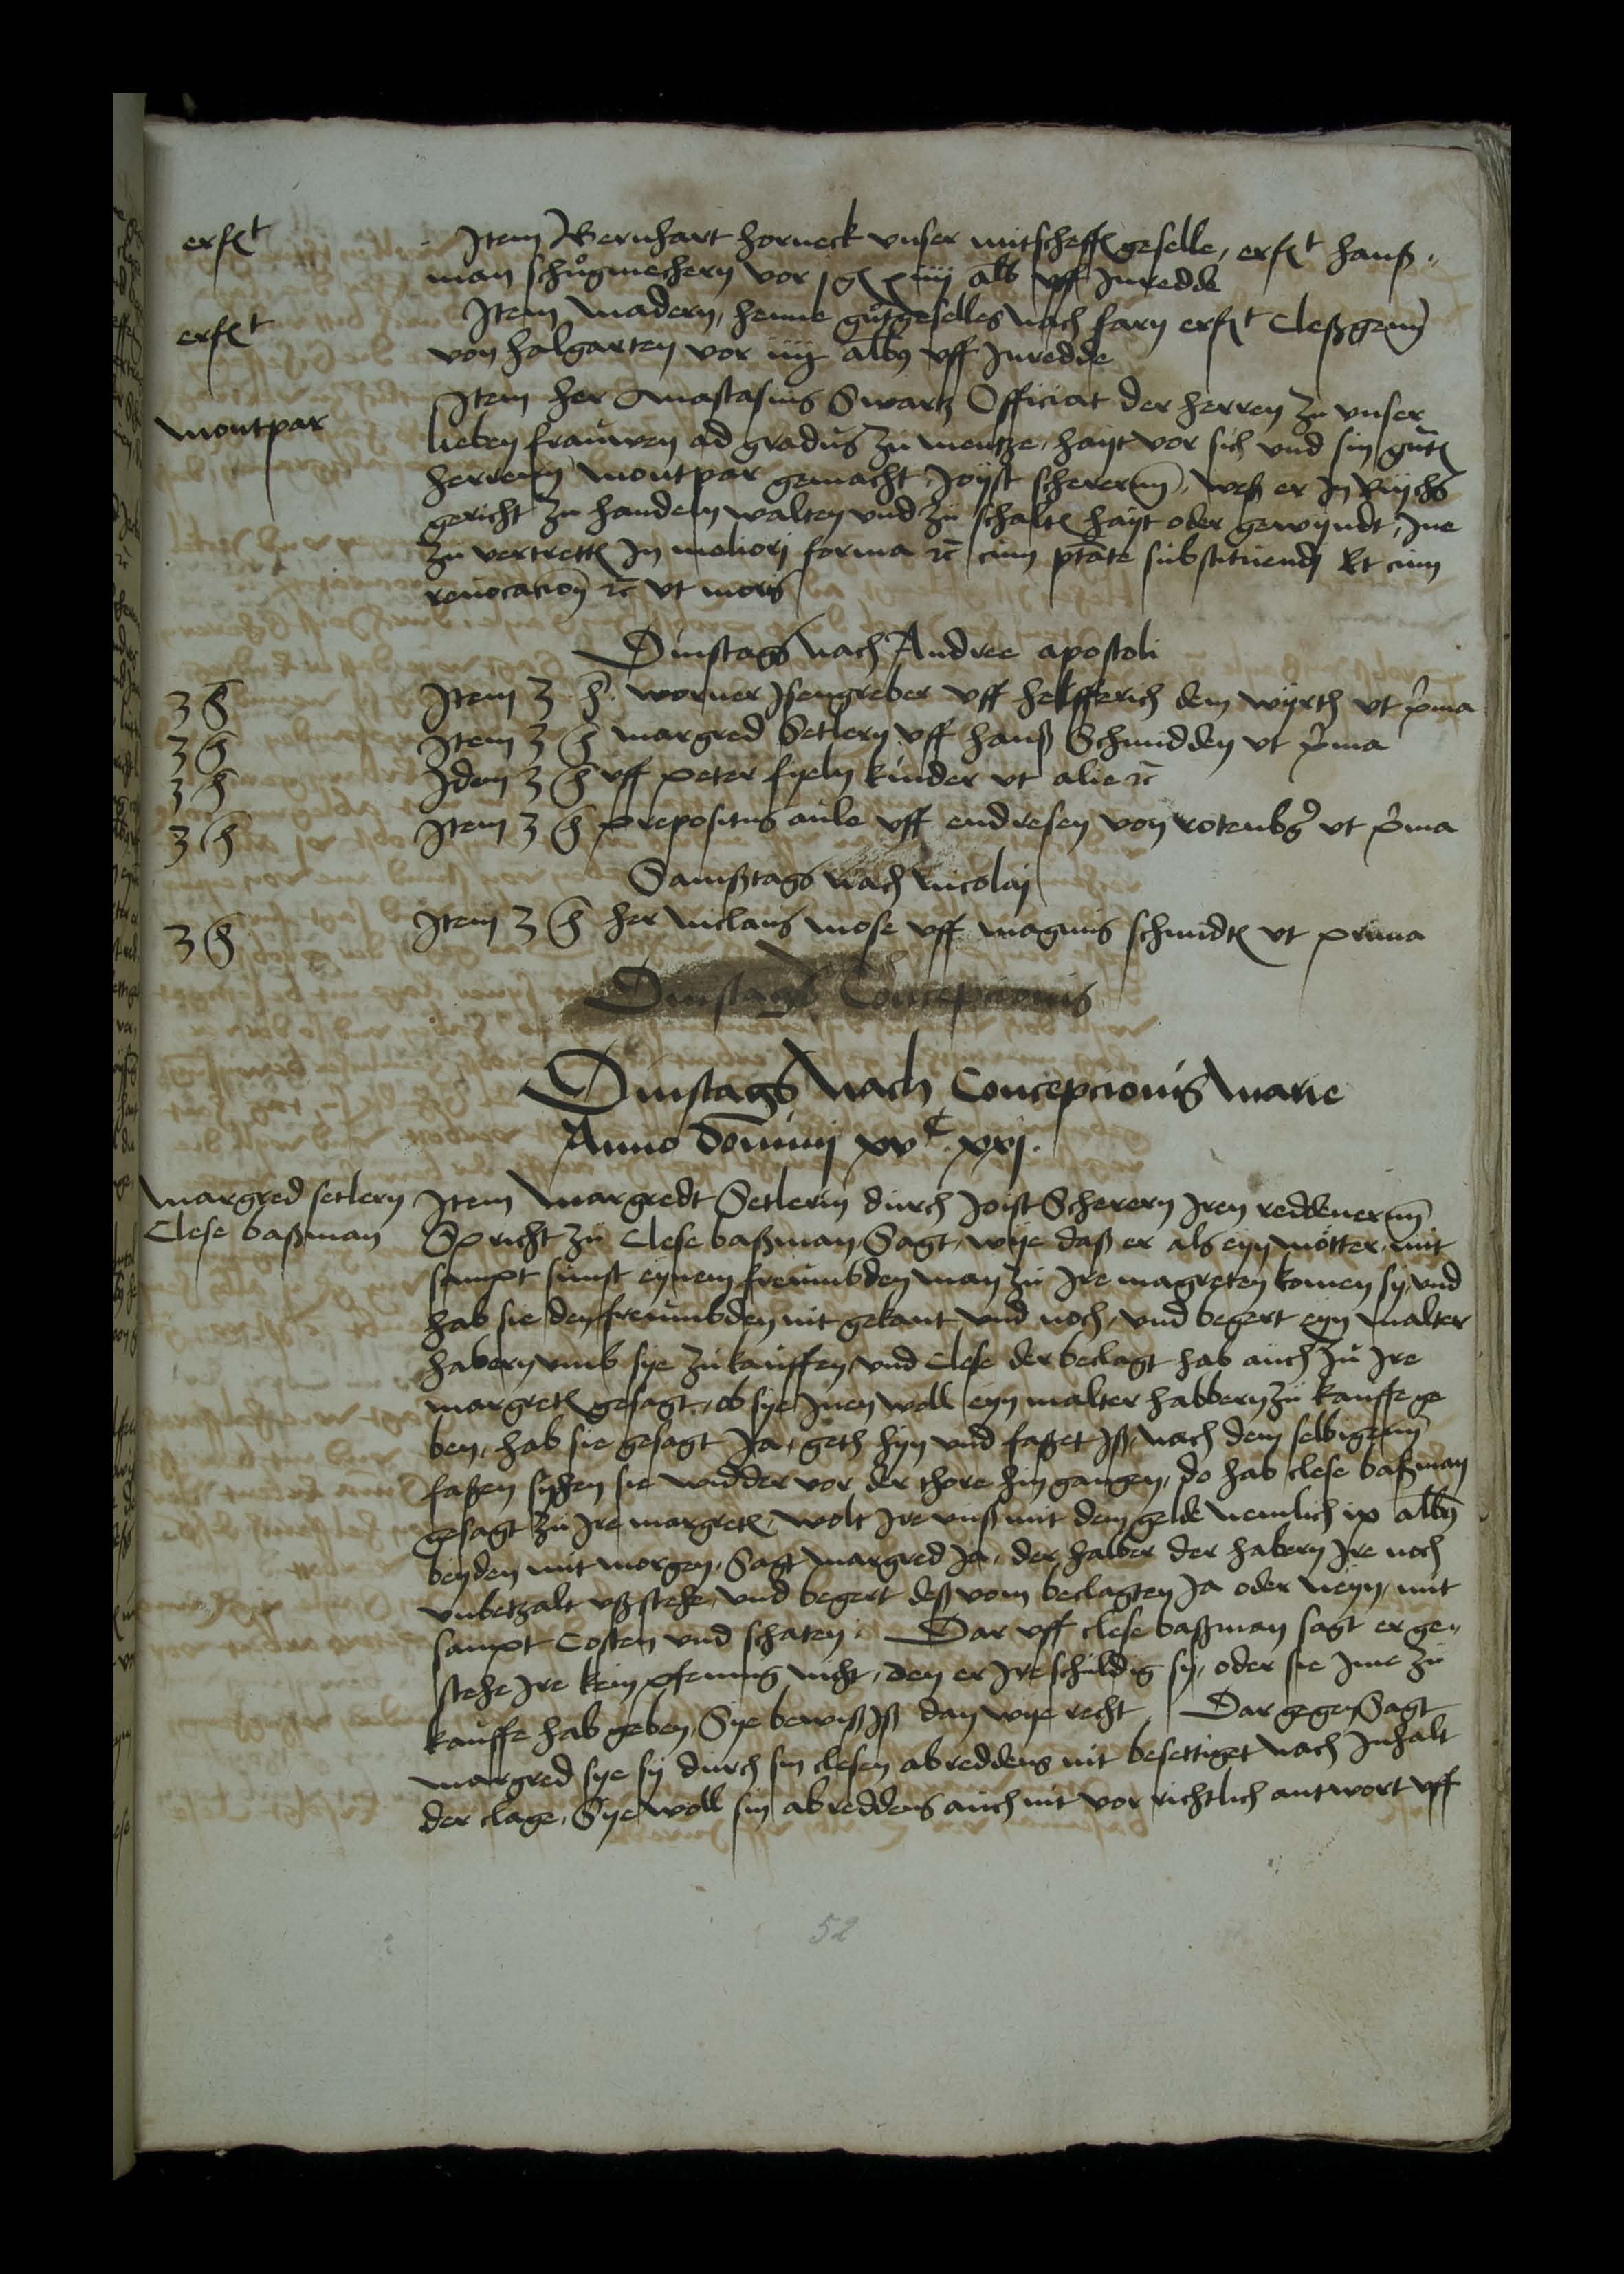 erfꝭt
Item Bernhart horneck vnser mitscheffꝭ geselle, erfꝭt hanß
man schůgmechern vor j gꝭ xiiij alb vff Inredde
erfꝭt
Item madern, henne gutgeselles nach farn erfꝭt Cleßgeniñ
von halgarten vor iiij albꝰ vff Inredde
montpar
Item her Anastasius Swartz Officiat der herren zu vnser
lieben frauwen ad gradus zu mentze, hayt vor sich vnd sin gutꝭ
herrenn montpar gemacht Joyst scherernn, weß er In Ruychs
gericht zu handeln walten vnd zu schaltꝭ hayt oder gewyndt, Ine
zu vertrettꝭ In meliorj forma ꝛc̄ cum ptāte substituendj Et cum
reuocationꝭ ꝛc̄ vt moris
Dinstags nach Andree apostoli
3 h
Item 3 h worner Isengreber vff helfferich dem wyrth vt p̂ma
3 h
Item 3 h margred Setlern vff hanß Schmidden vt p̂ma
3 h
Idem 3 h vff peter fyeln kinder vt alie ꝛc̄
3 h
Item 3 h prepositus aule vff endresen von rotenbg̉ vt p̂ma
Samßtags nach nicolaj
3 h
Item 3 h her niclaus mose vff magnus schmidtꝭ vt prima
Dinstags Concepcionis
Dinstags nach Concepcionis marie
Anno dominij xvᶜ xxj.
margred setlern
Clese baßman
Item margredt Setlerin durch Joist Scherern Iren reddenernn
Spricht zu Clese baßman, Sagt, wye daß er als eyn mötter, mit
sampt sunst eynem freumbden man zu Ire magreten komen sy, vnd
hab sie den freumbden nit gekant vnd noch, vnd begert eyn malter
habern vmb sye zu kauffen, vnd Clese der beclagt hab auch zu Ire
margretꝭ gesagt, ob sye Inen woll eyn malter habbern zu kauffe ge
ben, hab sie gesagt Ja, geth hyn vnd faßet Iß, nach dem selbigenn
faßen syhen sie widder vor der thore hin gangen, do hab clese baßman
gesagt zu Ire margretꝭ, wolt Ire vnß mit dem gelde nemlich ix albꝰ
beyden mit morgen, Sagt margred Ja, der halber der habern Ire noch
vnbetzalt vßstehe, vnd begert deß vom beclagten Ja oder neyn, mit
sampt Costen vnd schaten. Dar vff clese baßman sagt er ge,,
stehe Ire kein pfennig nicht, den er Ire schuldig sy, oder sie Ime zu
kauffe hab geben, Sye bewiß Iß dan wye recht, Dar gegen Sagt
margred sye sy durch sin clesen abreddens nit besettiget nach Inhalt
der clage, Sye woll sin abreddens auch nit vor richtlich antwort vff
52